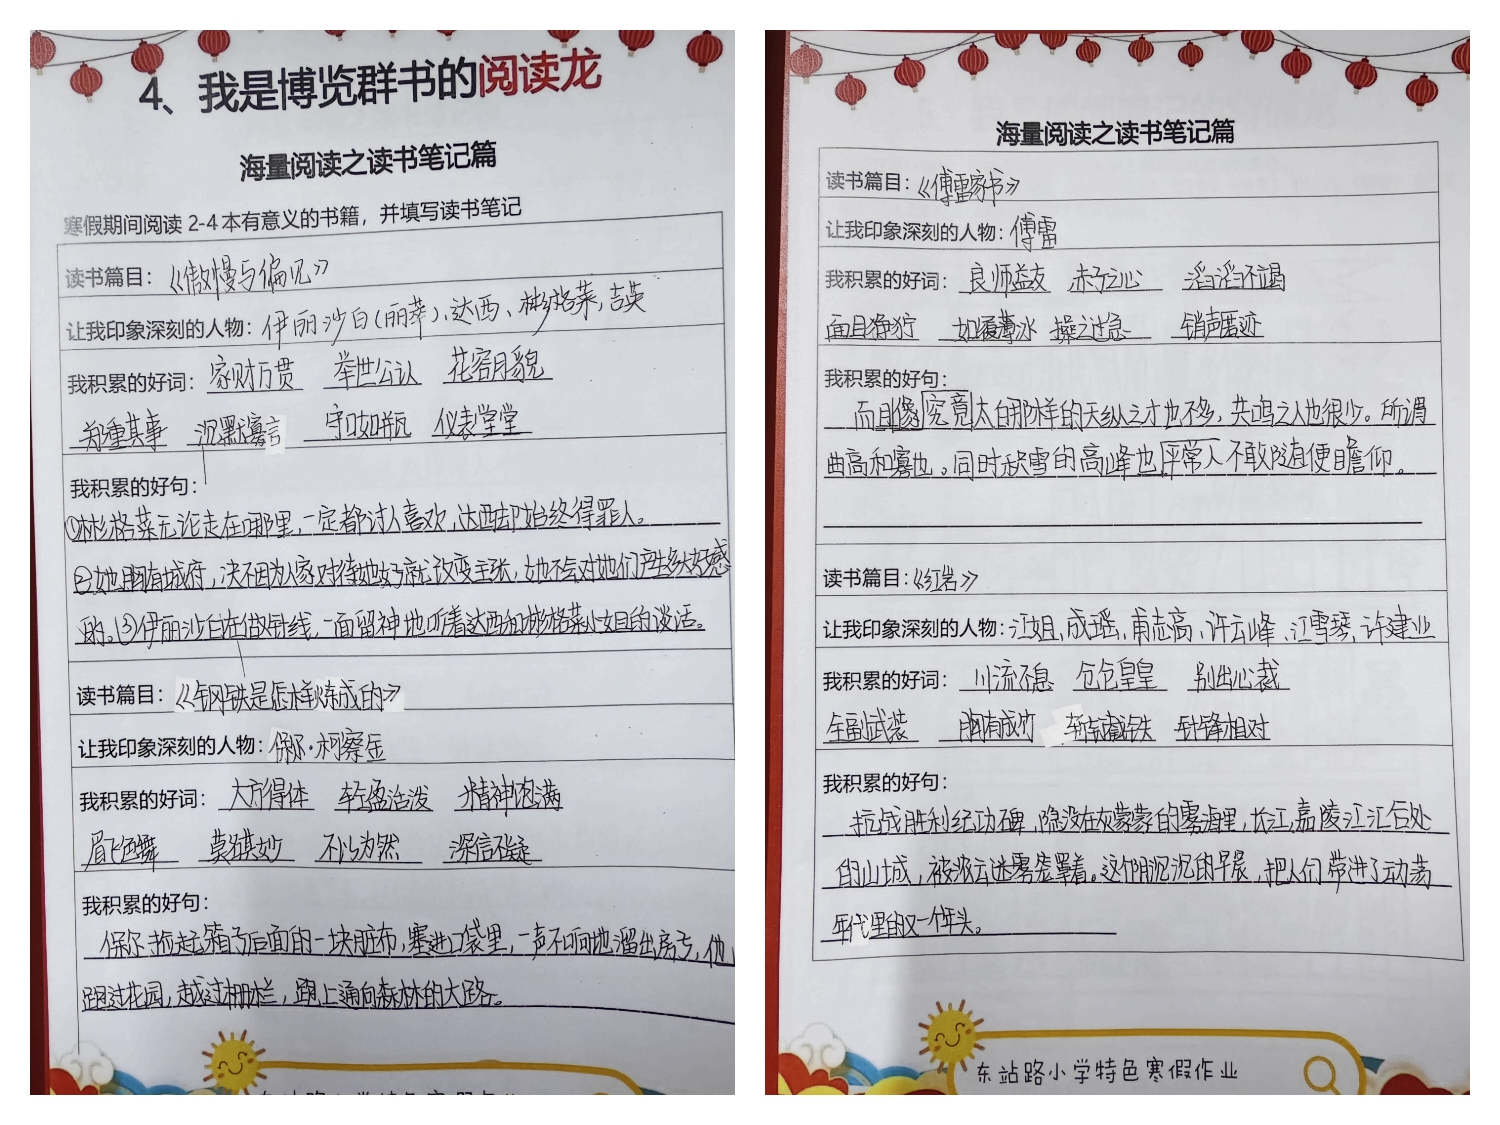 4、我是博览群书的阅读龙
海量阅读之读书笔记篇
寒假期间阅读 2-4 本有意义的书籍，并填写读书笔记
读书篇目：《傲慢与偏见》
让我印象深刻的人物：伊丽沙白(丽萃)、达西、彬格莱,吉英
我积累的好词：家财万贯 举世公认 花容月貌
郑重其事 沉默寡言 守口如瓶 仪表堂堂
我积累的好句：
①彬格莱无论走在哪里,一定都讨人喜欢,达西却始终得罪人。
②她胸有城府,决不因为人家对待她好就改变主张,她不会对她们产生多大好感
的。③伊丽沙白在做针线,一面留神地听着达西和彬格莱小姐的谈话。
读书篇目：《钢铁是怎样炼成的》
让我印象深刻的人物：保尔·柯察金
我积累的好词：大方得体 轻盈活泼 精神饱满
眉飞色舞 莫名其妙 不以为然 深信不疑
我积累的好句：
保尔抓起箱子后面的一块脏布,塞进口袋里,一声不响地溜出房子,他
跑过花园,越过栅栏,跑上通向森林的大路。
海量阅读之读书笔记篇
读书篇目：《傅雷家书》
让我印象深刻的人物：傅雷
我积累的好词：良师益友 赤子之心 滔滔不竭
面目狰狞 如履薄冰 操之过急 销声匿迹
我积累的好句：
而且像究竟太白那样的天纵之才也不多,共鸣之人也很少。所谓
曲高和寡也。同时积雪的高峰也平常人不敢随便瞻仰。
读书篇目：《红岩》
让我印象深刻的人物：江姐,成瑶,甫志高,许云峰、江雪琴,许建业
我积累的好词：川流不息 仓仓皇皇 别出心裁
全副武装 胸有成竹 斩钉截铁 针锋相对
我积累的好句：
抗战胜利纪功碑,隐没在灰蒙蒙的雾海里,长江,嘉陵江汇合处
的山城,被浓云迷雾笼罩着。这个阴沉沉的早晨,把人们带进了动荡
年代里的又一个年头。
东站路小学特色寒假作业